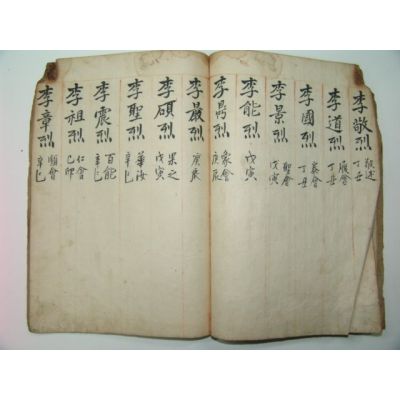 李敬烈 敬述 丁丑
李道烈 順會 丁丑
李國烈 泰會 丁丑
李景烈 聖會 戊寅
李能烈 戊寅
李昺烈 象會 庚辰
李最烈 庚辰
李碩烈 果之 戊寅
李聖烈 華汝 辛巳
李震烈 百能 辛巳
李祖烈 仁會 己卯
李章烈 順會 辛巳